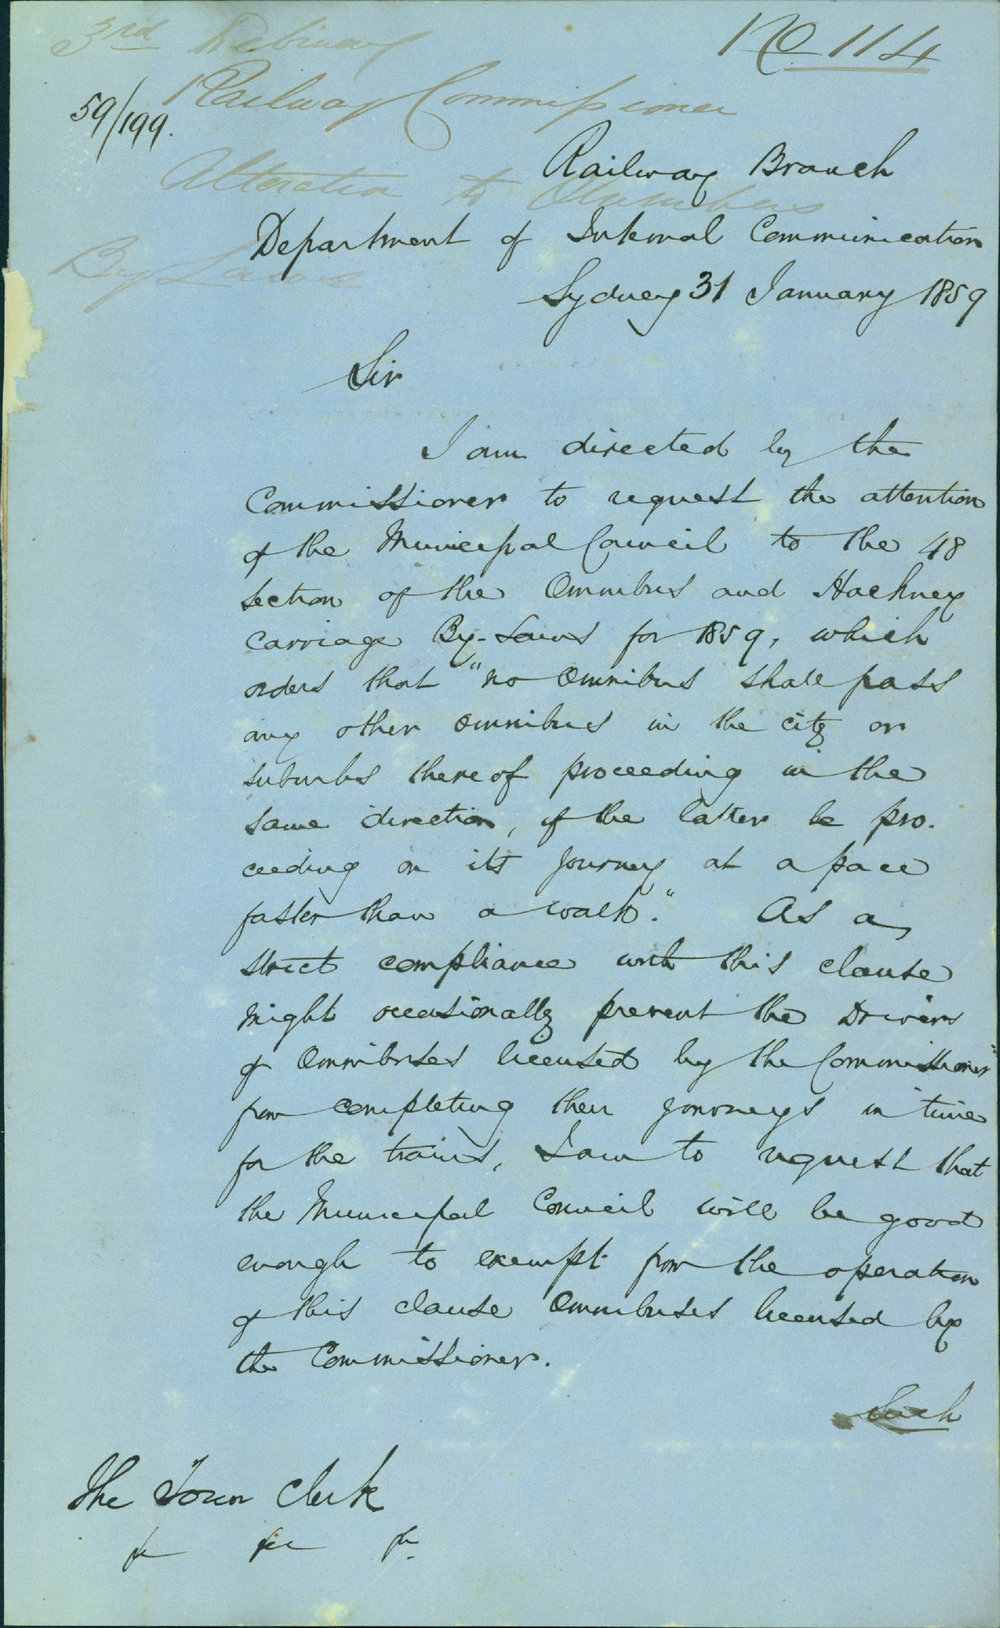 3rd February
No 114
Railway Commissioner
59/199.
Railway Branch
Alteration to Omnibus
Department of Internal Communication
By Laws
Sydney 31 January 1859
Sir
I am directed by the
Commissioner to request the attention
of the Municipal Council to the 48
section of the Omnibus and Hackney
Carriage By-Laws for 1859, which
orders that "no Omnibus shall pass
any other omnibus in the city or
suburbs thereof proceeding in the
same direction, if the latter be pro.
ceeding on its journey at a pace
faster than a walk." As a
strict compliance with this clause
might occasionally prevent the Drivers
of Omnibuses licensed by the Commissioner
from completing their journeys in time
for the trains, I am to request that
the Municipal Council will be good
enough to exempt from the operation
of this clause Omnibuses licensed by
the Commissioner.
Such
The Town Clerk